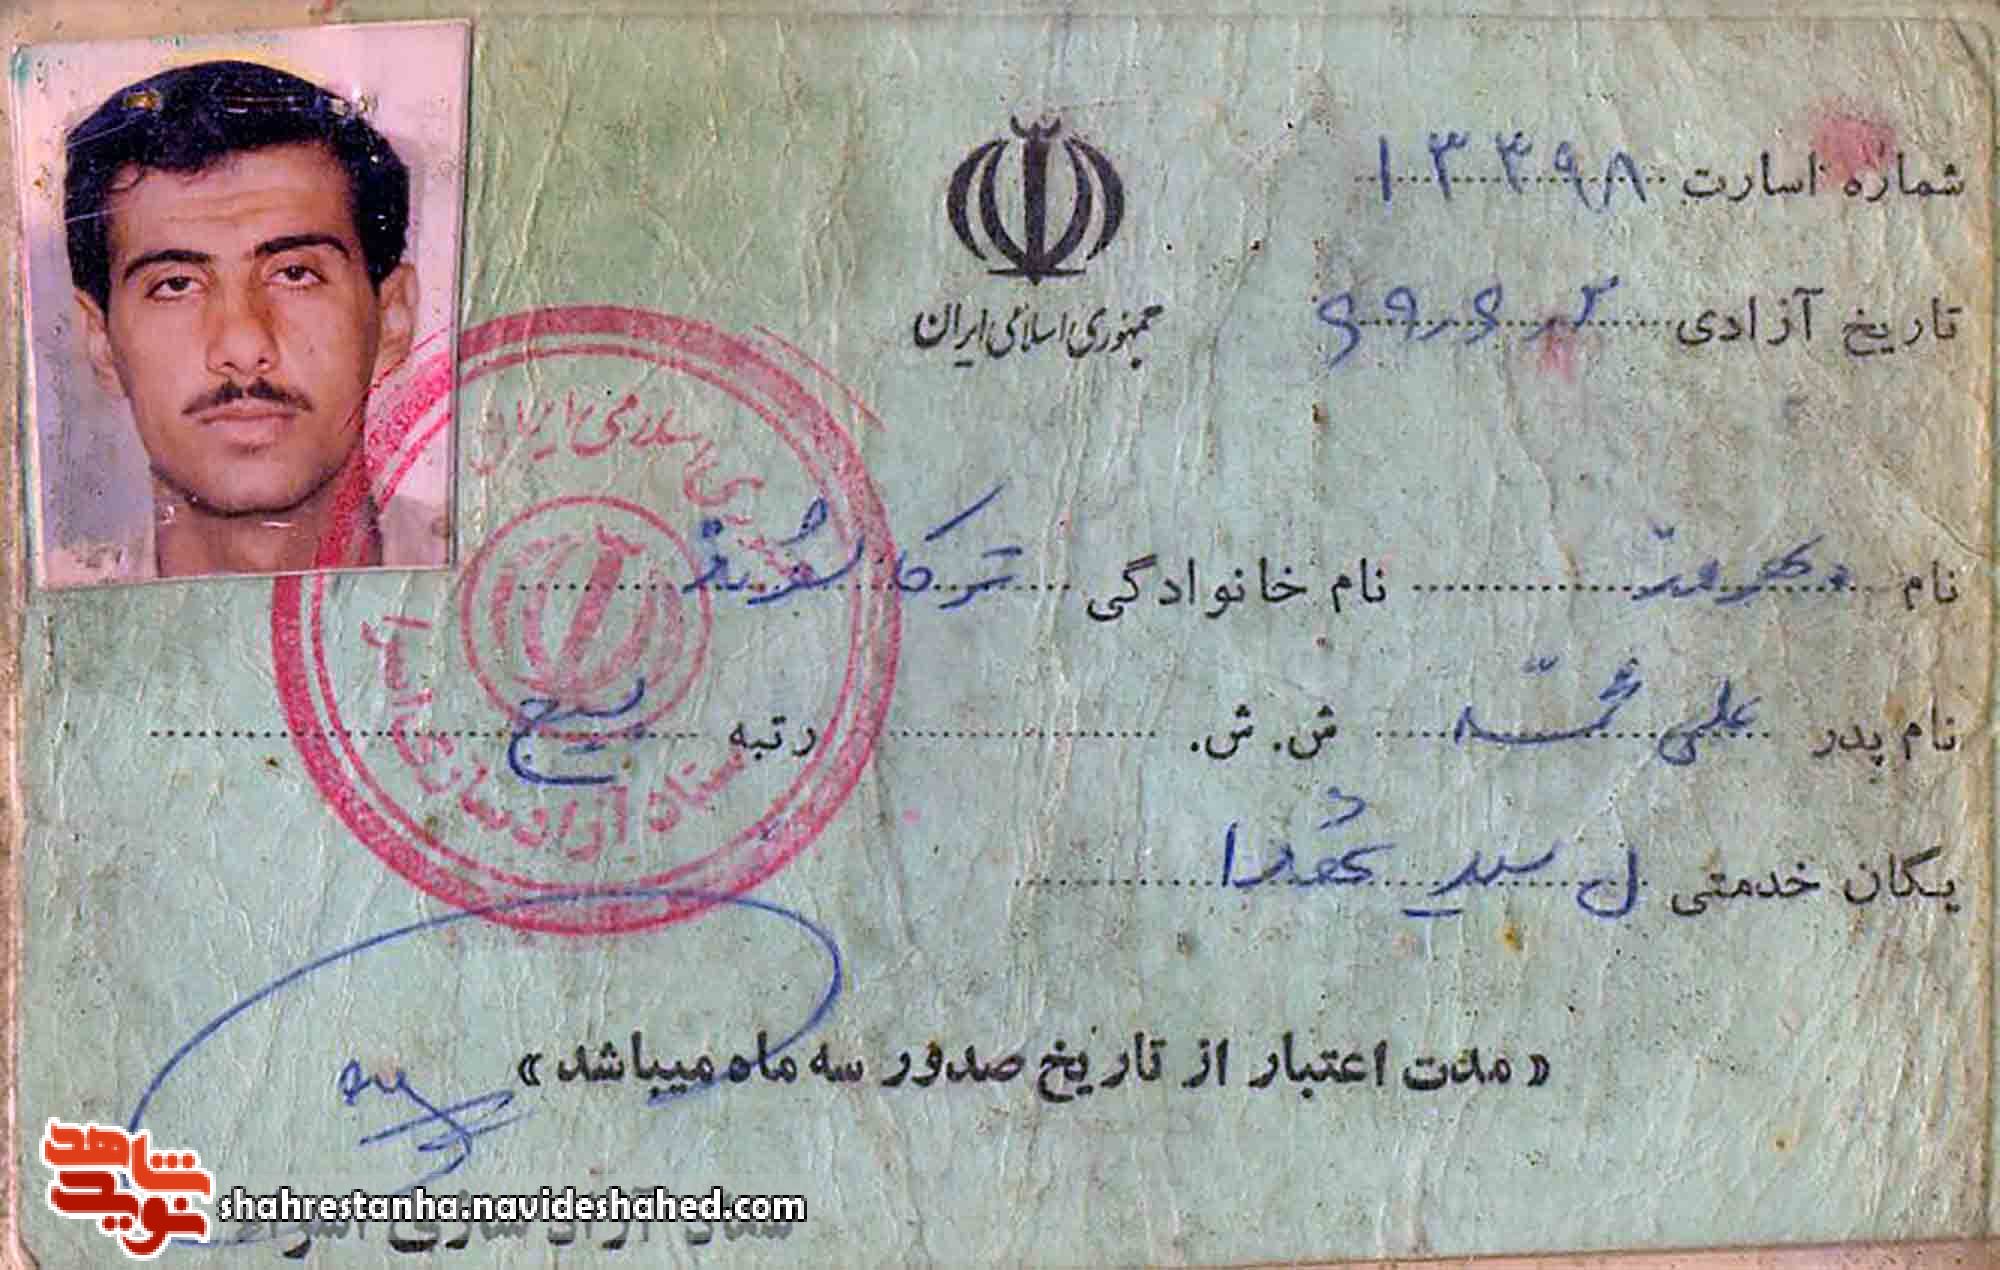 شماره اسارت ۱۳۳۹۸
تاریخ آزادی
جمهوری اسلامی ایران
نام نام خانوادگی
نام پدر علی محمد ش. ش. رتبه بسیج
یکان خدمتی ل سید الشهدا
جمهوری اسلامی ایران
ستاد آزادسازی اسرا
« مدت اعتبار از تاریخ صدور سه ماه میباشد »
ستاد آزادسازی اسرا
نوید شاهد
shahrestanha.navideshahed.com